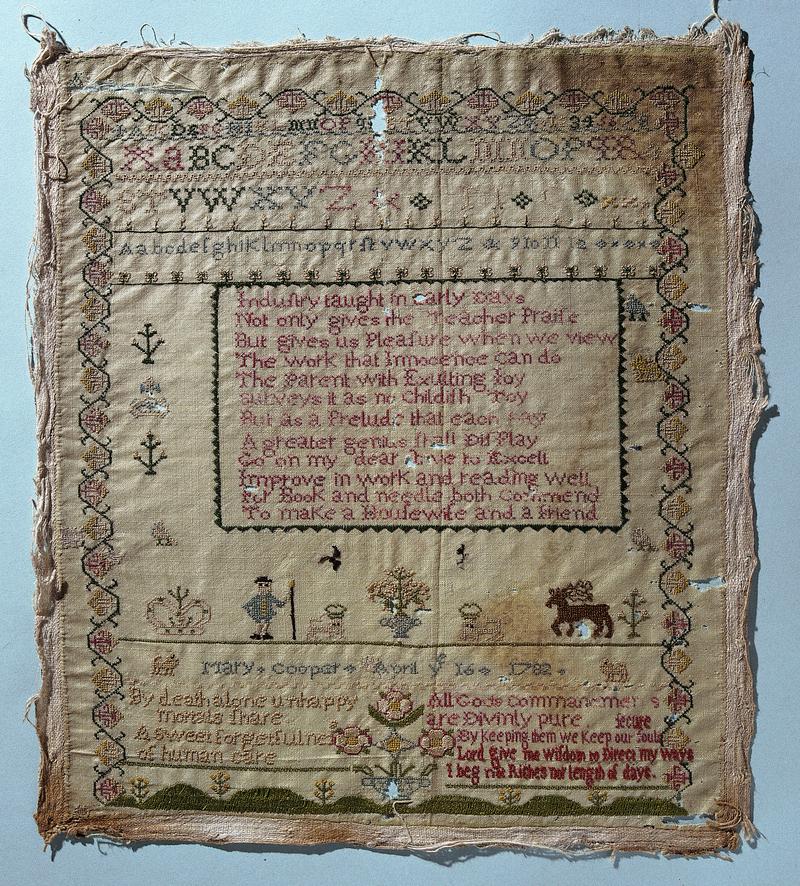 VWXYZ
Aabcdefghiklmnopqrſtvwxyz & 9 10 11 12
Induſtry taught in early Days
Not only gives the Teacher Praiſe
But gives us Pleaſure when we view
The work that Innocence can do
The Parent with Exulting Joy
surveys it as no Childiſh Toy
But as a Prelude that each Day
A greater genius ſhall Diſplay
Go on my dear to Excell
Improve in work and reading well
For Book and needle both Commend
To make a Houſewife and a friend
Mary Cooper April 16 1782
By death alone unhappy
mortals ſhare
A sweet forgetfulneſ
of human care
All Gods commanements
are Divinly pure
ſecure
By keeping them we Keep our Souls
Lord give me wiſdom to Direct my ways
I beg not Riches nor length of days.